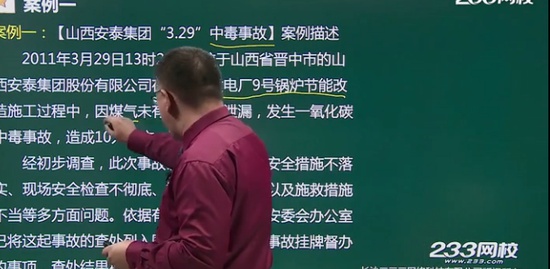 233网校
案例一
案例一：【山西安泰集团“3.29”中毒事故】案例描述
2011年3月29日13时2 于山西省晋中市的山
西安泰集团股份有限公司 电厂9号锅炉节能改
造施工过程中，因煤气未有 泄漏，发生一氧化碳
中毒事故，造成10
经初步调查，此次事故 安全措施不落
实、现场安全检查不彻底、 以及施救措施
不当等多方面问题。依据有 安委会办公室
已将这起事故的查处列入 事故挂牌督办
的事项，查处结果
233网校